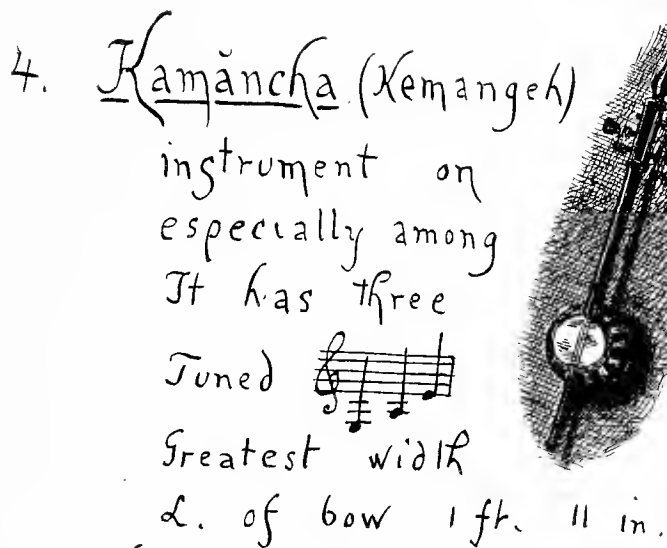 4. Kamăncha (Kemangeh)
instrument on
especially among
It has three
Tuned
Greatest width
L. of bow 1 ft. 11 in.